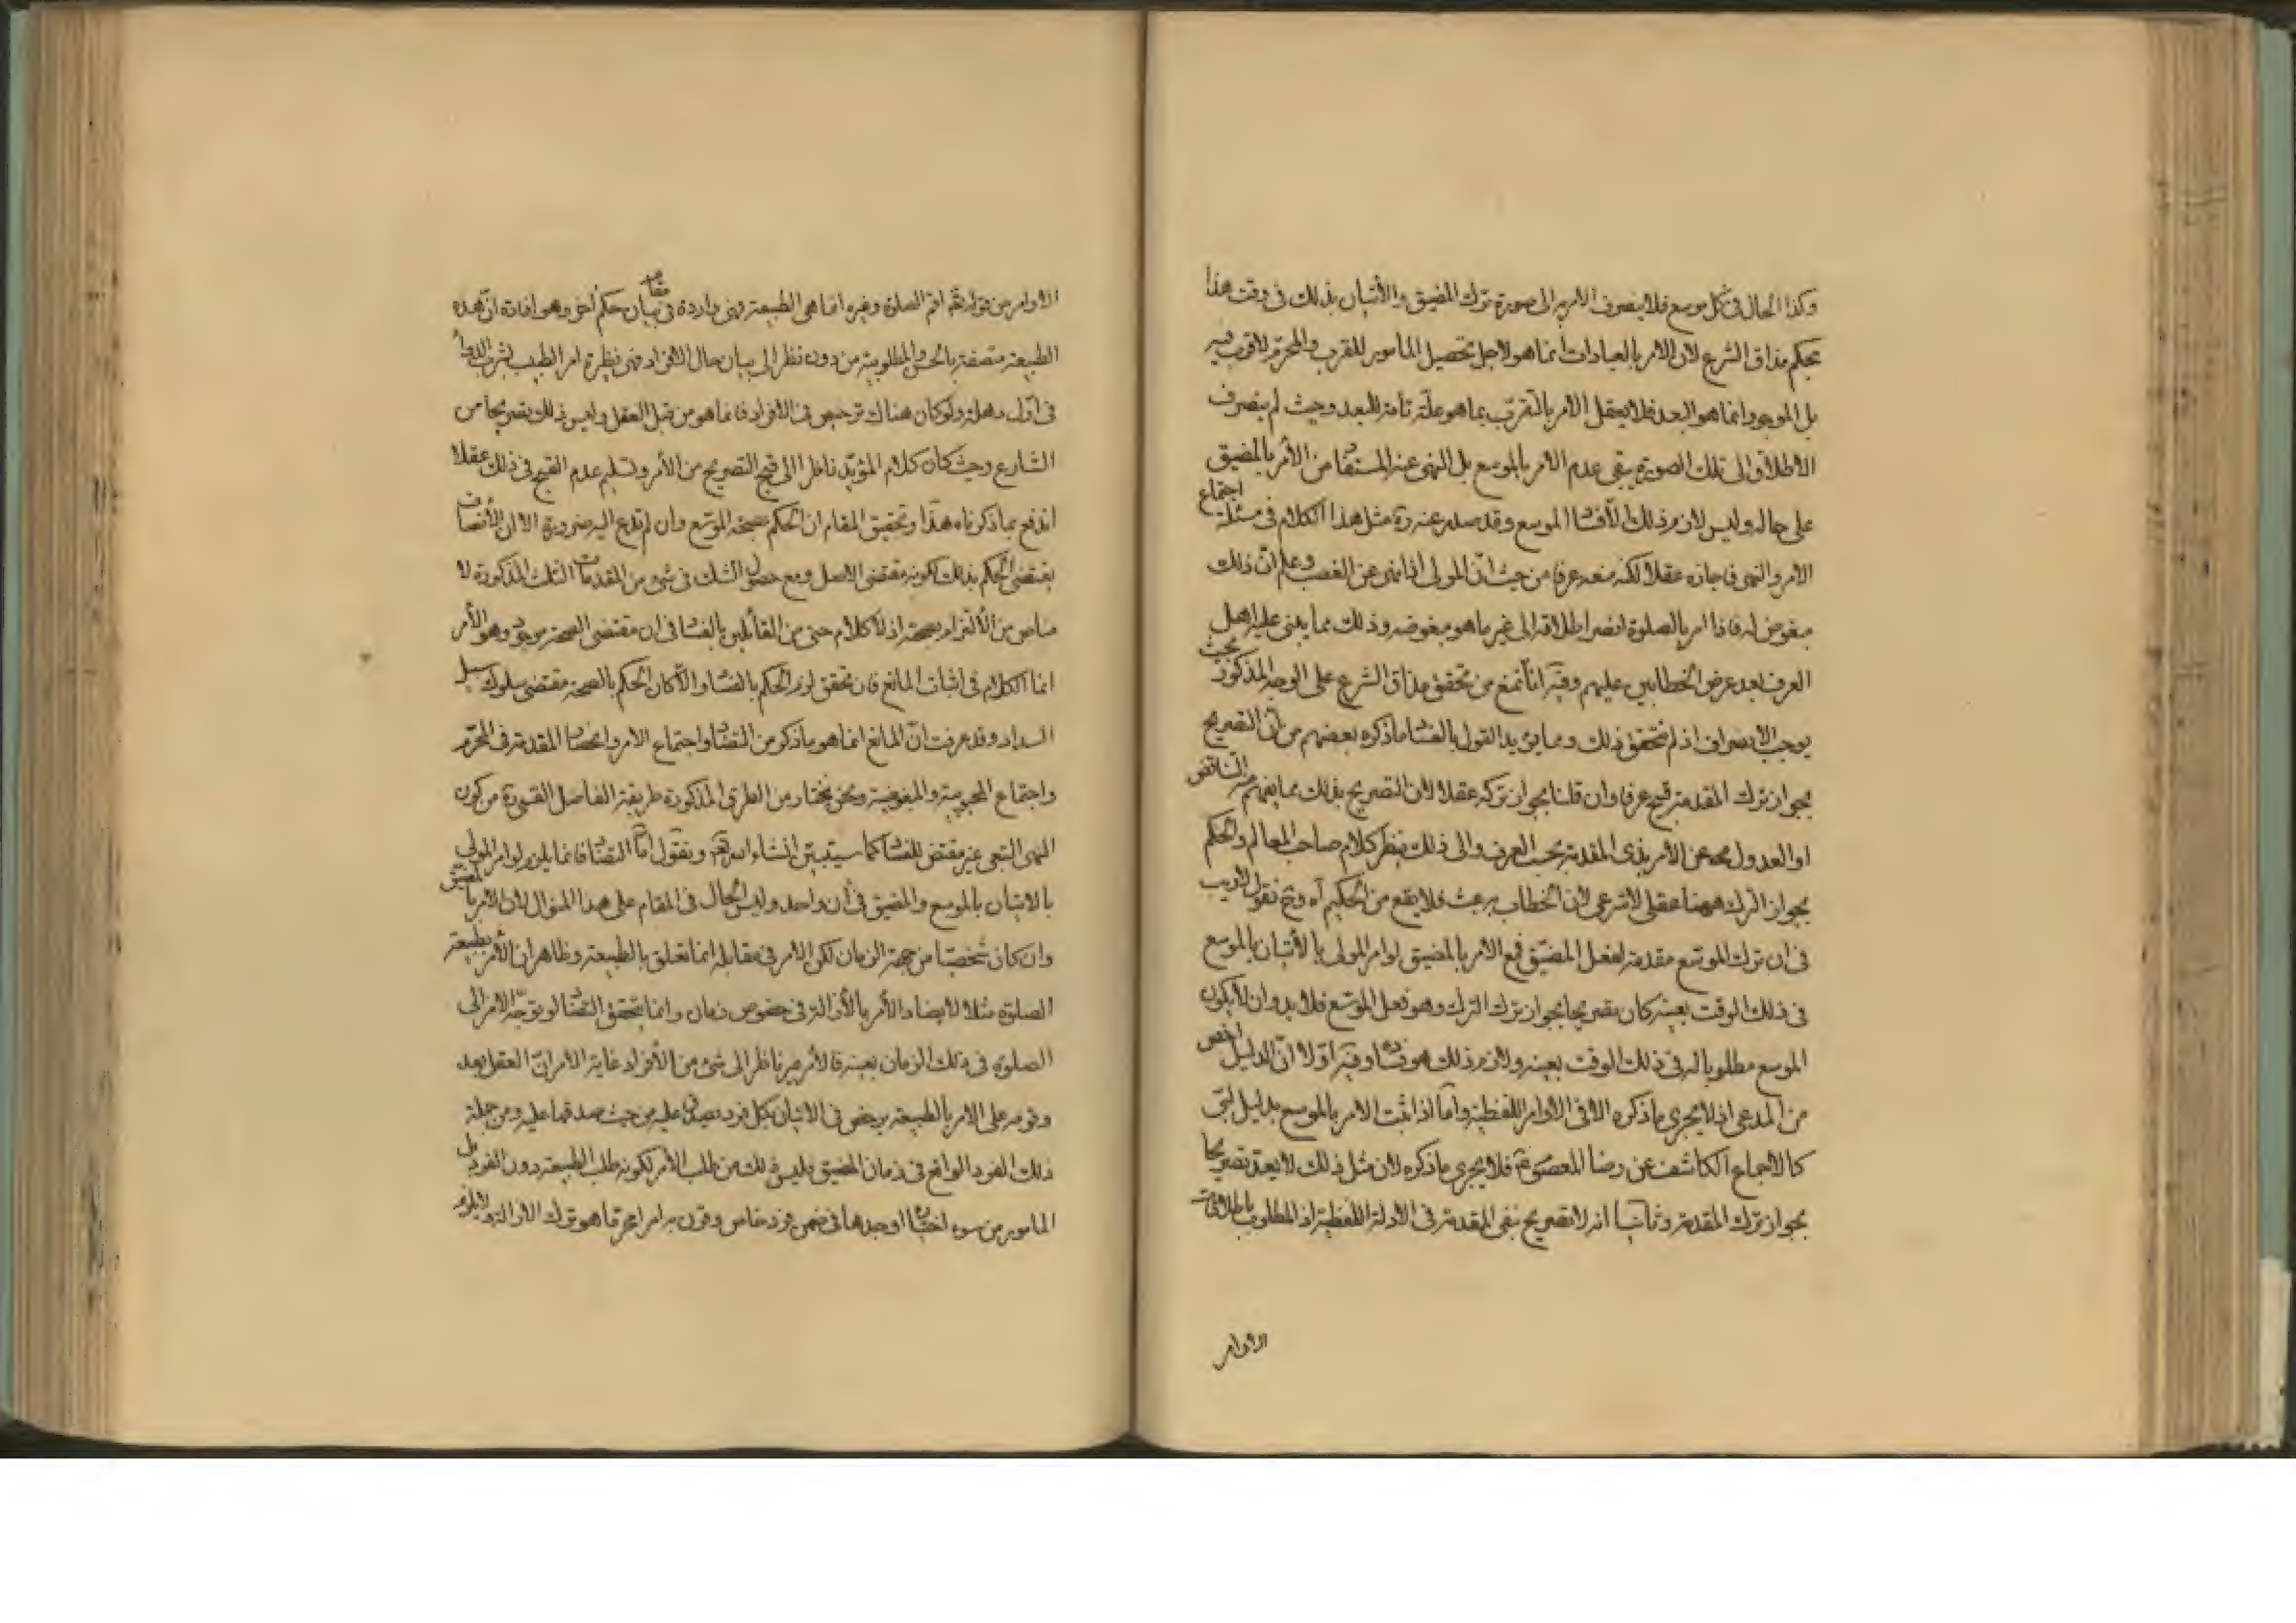 وكذا الحال فى كل موسع فلا ينصرف الامر به الى صورة ترك المضيق والأتيان بذلك فى وقت هذا
بحكم مذاق الشرع لان الامر بالعبادات انما هو لاجل تحصيل المامور للقرب والمحرم لا قرب فيه
بل الموجود انما هو البعد فلا يعقل الامر بالتقرب بما هو علة تامة للبعد وحيث لم ينصرف
الاطلاق الى تلك الصورة يبقى عدم الامر بالموسع بل النهى عنه المستفا من الأمر بالمضيق
على حاله وليس لازم ذلك الا فسا الموسع وقد صدر عنه ره مثل هذا الكلام فى مسئلة اجتماع
الامر والنهى فاجازه عقلا لكنه منعه عرفا من حيث ان المولى اذا نهى عن الغصب وعلم ان ذلك
مبغوض له فاذا امر بالصلوة انصر اطلاقه الى غير ما هو مبغوضه وذلك مما يبنى عليه اهل
العرف بعد عرض الخطابين عليهم وفيه انا نمنع من تحقق مذاق الشرع على الوجه المذكور بحيث
يوجب الانصراف اذ لم نتحقق ذلك ومما يؤيد القول بالفسا ما ذكره بعضهم من ان التصريح
بجواز ترك المقدمة قبيح عرفا وان قلنا بجواز تركه عقلا لان التصريح بذلك مما يفهم منه التناقض
او العدول محه عن الأمر بذى المقدمة بحسب العرف والى ذلك ينظر كلام صاحب المعالم والحكم
بجواز الترك ههنا عقلى لا شرعى لان الخطاب به عبث فلا يقع من الحكيم آه وح نقول لا ريب
فى ان ترك الموسع مقدمة لفعل المضيق فمع الامر بالمضيق لو امر المولى بالأتيان بالموسع
فى ذلك الوقت بعينه كان تصريحا بجواز ترك الترك وهو فعل الموسع فلا بد وان لا يكون
الموسع مطلوبا له فى ذلك الوقت بعينه ولازم ذلك هو فسا وفيه اولا ان الدليل اخص
من المدعى اذ لا يجرى ما ذكره الا فى الاوامر اللفظية واما اذا ثبت الامر بالموسع بدليل لبى
كالاجماع الكاشف عن رضا المعصوم ع فلا يجرى ما ذكره لان مثل ذلك لا يعد تصريحا
بجواز ترك المقدمة وثانيا انه لا تصريح بنفى المقدمة فى الادلة اللفظية اذ المطلوب باطلاقات
الاوامر
الاوامر من قوله تعم اقم الصلوة وغيره انما هى الطبيعة فهى واردة فى مقام بيان حكم آخر وهو افادة ان هذه
الطبيعة متصفة بالحسن والمطلوبية من دون نظر الى بيان حال الافراد فهى نظيرة امر الطبيب بشرب الدواء
فى اول وهلة ولو كان هناك ترخيص فى الافراد فانما هو من قبل العقل وليس ذلك تصريحا من
الشارع وحيث كان كلام المؤيد ناظرا الى قبح التصريح من الأمر وتسليم عدم القبح فى ذلك عقلا
اندفع بما ذكرناه هذا وتحقيق المقام ان الحكم بصحة الموسع وان لم تدع اليه ضرورة الا ان الأنصاف
يقتضى الحكم بذلك لكونه مقتضى الاصل ومع حصول الشك فى شئ من المقدمات الثلث المذكورة لا
مناص من الألتزام بصحته اذ لا كلام حتى من القائلين بالفسا فى ان مقتضى الصحة موجود وهو الأمر
انما الكلام فى اثبات المانع فان تحقق لزم الحكم بالفسا والا كان الحكم بالصحة مقتضى سلوك سبيل
السداد وقد عرفت ان المانع انما هو ما ذكر من التضا واجتماع الامر وانحصا المقدمة فى المحرم
واجتماع المحبوبية والمبغوضية ونحن نختار من الطرق المذكورة طريقة الفاضل القمى ره من كون
النهى التبعى غير مقتض للفسا كما سيتبين انشاء الله تعم ونقول اما التضا فانما يلزم لو امر المولى
بالاتيان بالموسع والمضيق فى أن واحد وليس الحال فى المقام على هذا المنوال لان الأمر بالمضيق
وان كان شخصيا من جهة الزمان لكن الامر فى مقابله انما تعلق بالطبيعة وظاهر ان الأمر بطبيعة
الصلوة مثلا لا يضاد الأمر بالأزالة فى خصوص زمان وانما يتحقق التضا لو توجه الامر الى
الصلوة فى ذلك الزمان بعينه فالأمر غير ناظر الى شئ من الأفراد غاية الامر ان العقل بعد
وقوفه على الامر بالطبيعة يرخص فى الاتيان بكل فرد تصدق عليه من حيث صدقها عليه ومن جملة
ذلك الفرد الواقع فى زمان المضيق وليس ذلك من طلب الأمر لكونه طلب الطبيعة دون الفرد بل
المامور من سوء اختيا اوجدها فى ضمن فرد خاص وقرن به امرا محرما هو ترك الازالة ولا يلزم